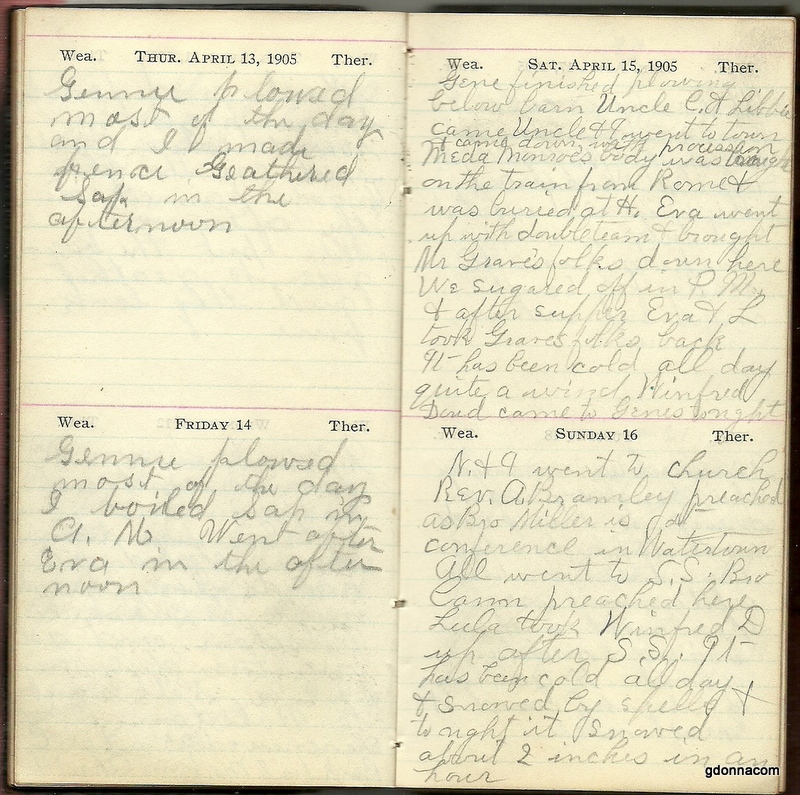 Wea. THUR. APRIL 13, 1905 Ther.
Gennie plowed
most of the day
and I made
fence Geathered
Sap in the
afternoon
Wea. FRIDAY 14 Ther.
Gennie plowed
most of the day
I boiled sap in
A. M. Went after
Eva in the after
noon
Wea. SAT. APRIL 15, 1905 Ther.
Gene finished plowing
below barn Uncle C. A Libbie
came Uncle & I went to town
& came down with procession
Meda Monroe's body was brought
on the train from Rome &
was buried at H. Eva went
up with double team & brought
Mr Graves folks down here
We sugared off in P. M.
& after supper Eva & L
took Graves folks back
It has been cold all day
quite a wind Winfred
Doud came to Genes tonight
Wea. SUNDAY 16 Ther.
N. & I went to church
Rev. A Bramley preached
as Bro Miller is at
conference in Watertown
All went to S. S. Bro
Cann preached here
Lula took Winfred D
up after S. S. It
has been cold all day &
& snowed by spells &
to night it snowed
about 2 inches in an
hour
gdonnacom